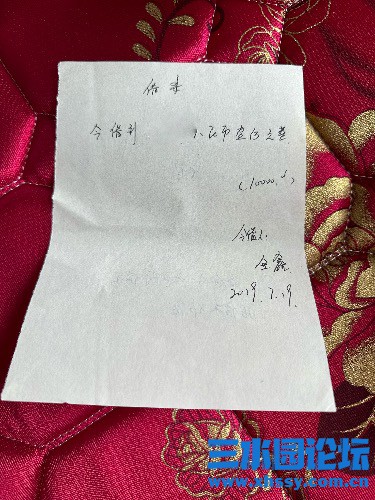 借条
今借到 人民币壹万元整
(10000.)
今借人:
2019.7.19.
三水图论坛
www.xhssy.com.cn